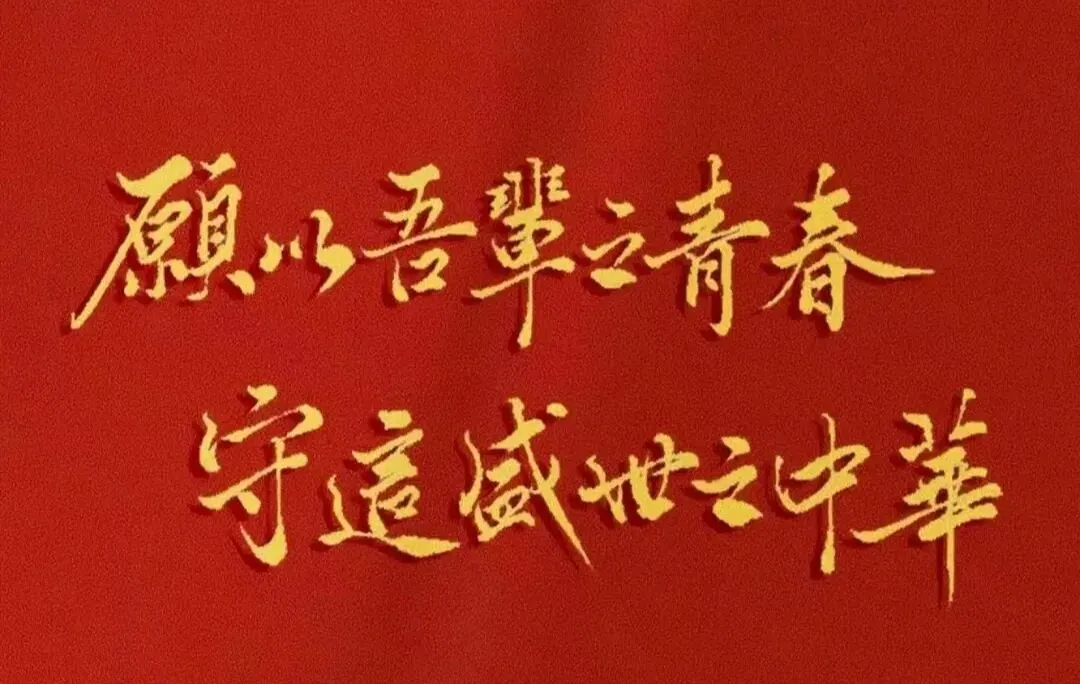 願以吾輩之青春
守這盛世之中華